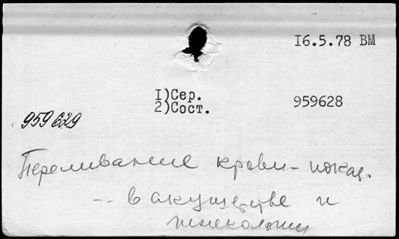 16.5.78 ВМ
1)Сер.
2)Сост.
959628
959629
Переливание крови – показ.
–– в акушерстве и
гинекологии